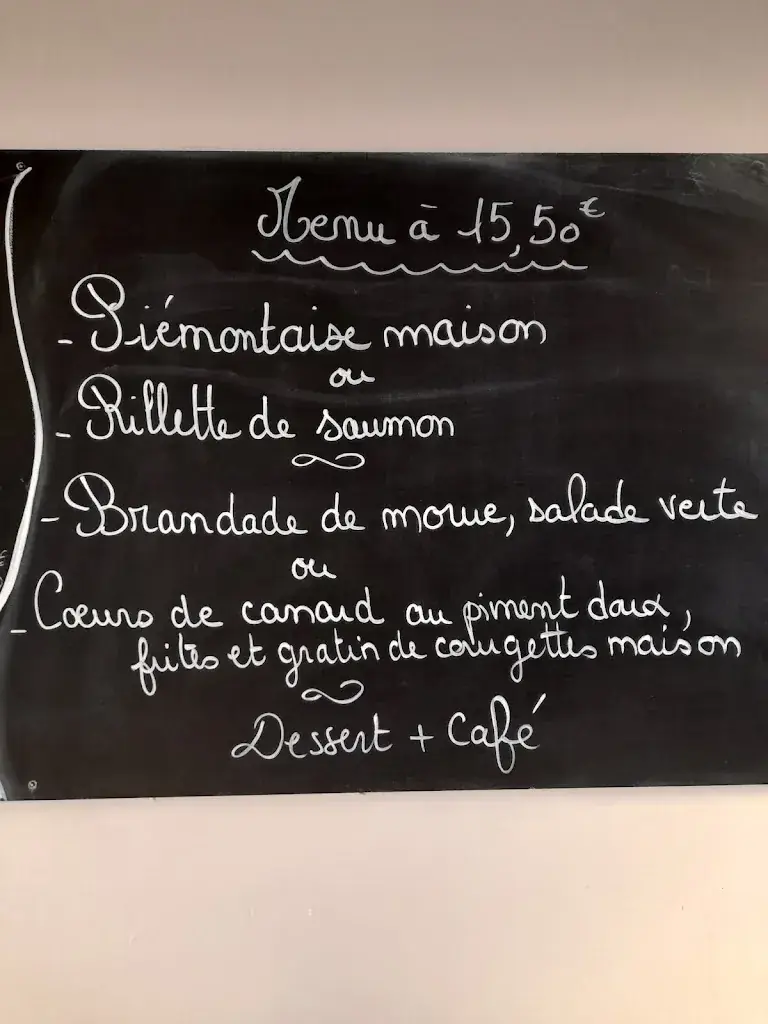 Menu à 15,50€
- Piémontaise maison
ou
- Rillette de saumon
- Brandade de morue, salade verte
ou
- Coeurs de canard au piment doux,
frites et gratin de courgettes maison
Dessert + Café